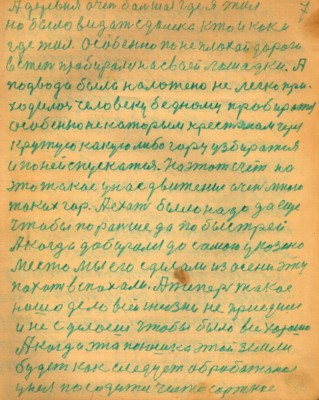 А деревня очен балшая где я жил 7
но было видат сдалека кто и как и
где жил. Особенно по неплохой дороги
в степ пробирался на своей лошадки. А
подвода была наложено не легко при-
ходилос человеку бедному пробиратся
особенно некаторым крестянам чере
крутую какую либо гору узбиратся
и по ней спускатся. На этот счёт но
это такое у нас движение очен много
таких гор. А ехат было надо да еще
чтобы пораньше да по быстрей
А когда добирались до самого указано
место мы его сделали из осени эту
пахот вспахали. А теперь такое
нашо дело вей жизнь не
и не сделоеш чтобы было все хорошо
А когда эта полоска этой земли
будет как следует обработаное
у нея посодити